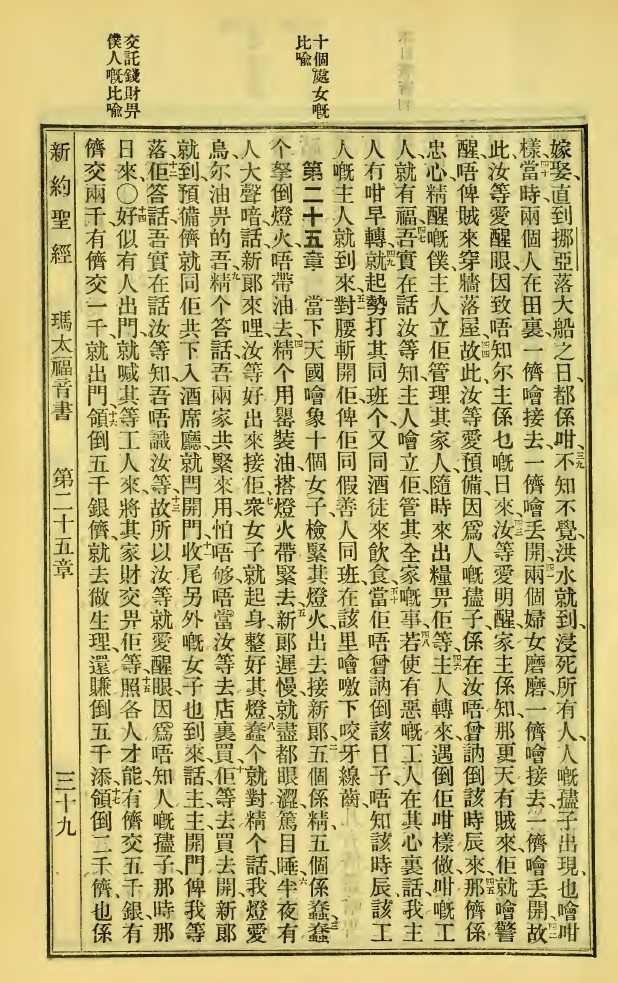 十個處女嘅
比喻
交託錢財畀
僕人嘅比喻
嫁娶直到挪亞落大船之日都係咁三九不知不覺洪水就到浸死所有人人嘅𡥧子出現也噲咁
樣四十當時兩個人在田裏一儕噲接去一儕噲丟開四一兩個婦女磨磨一儕噲接去一儕噲丟開四二故
此汝等愛醒眼因致唔知尔主係乜嘅日來四三汝等愛明醒家主係知那更天有賊來佢就噲警
醒唔俾賊來穿牆落屋四四故此汝等愛預備因爲人嘅𡥧子係在汝唔曾訥倒該時辰來四五那儕係
忠心精醒嘅僕主人立佢管理其家人隨時來出糧畀佢等四六主人轉來遇倒佢咁樣做咁嘅工
人就有福四七吾實在話汝等知主人噲立佢管其全家嘅事四八若使有惡嘅工人在其心裏話我主
人冇咁早轉四九就起勢打其同班个又同酒徒來飲食五十當佢唔曾訥倒該日子唔知該時辰該工
人嘅主人就到來五一對腰斬開佢俾佢同假善人同班在該里噲噭下咬牙線齒
第二十五章 一當下天國噲象十個女子檢緊其燈火出去接新郎二五個係精五個係蠢三蠢
个拏倒燈火唔帶油去四精个用罌裝油搭燈火帶緊去五新郎遲慢就盡都眼澀篤目睡六半夜有
人大聲喑話新郎來哩汝等好出來接佢七衆女子就起身整好其燈八蠢个就對精个話我燈愛
烏尔油畀的吾九精个答話吾兩家共緊來用怕唔够唔當汝等去店裏買十佢等去買去開新郎
就到預備儕就同佢共下入酒席廳就閂開門十一收尾另外嘅女子也到來話主主開門俾我等
落十二佢答話吾實在話汝等知吾唔識汝等十三故所以汝等就愛醒眼因爲唔知人嘅𡥧子那時那
日來〇十四好似有人出門就喊其等工人來將其家財交畀佢等十五照各人才能有儕交五千銀有
儕交兩千有儕交一千就出門十六領倒五千銀儕就去做生理還賺倒五千添十七領倒二千儕也係
新約聖經 瑪太福音書 第二十五章 三十九